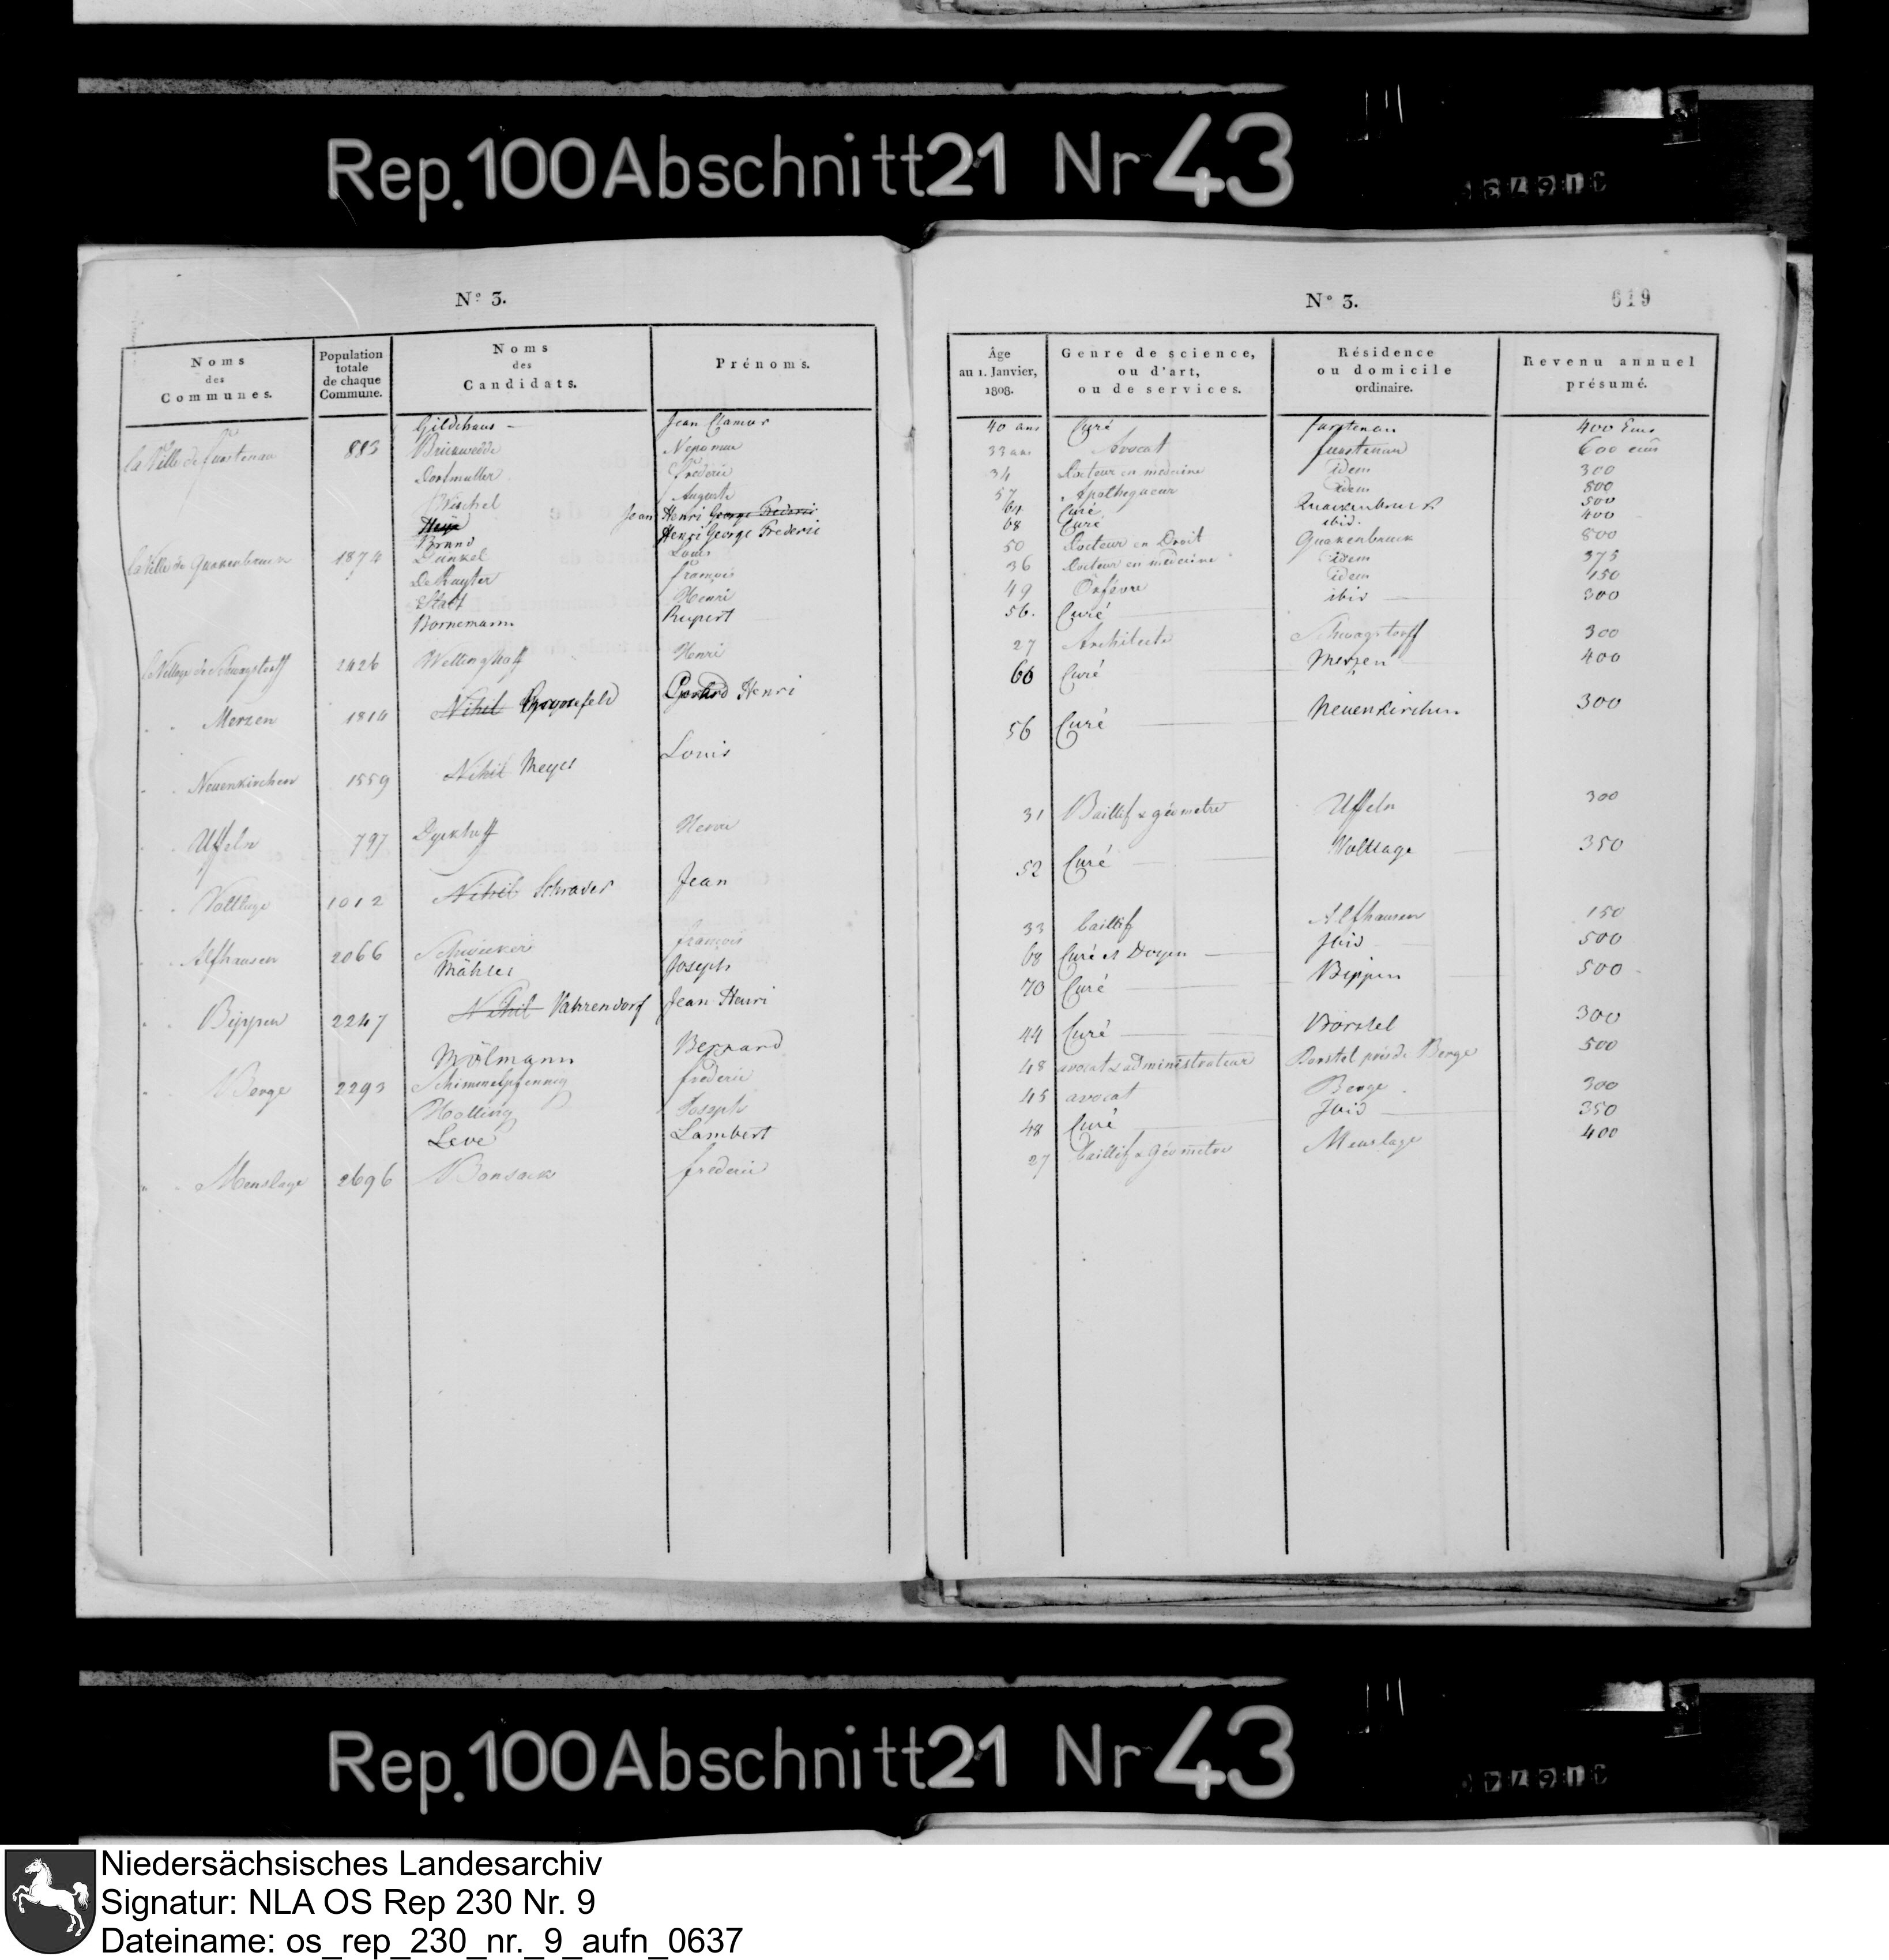 Rep. 100 Abschnitt 21 Nr 43
N° 3.
Noms des Communes.
Population totale de chaque Commune.
Noms des Candidats.
Prénoms.
la Ville de furstenau 883
Gildehaus Jean Clamor
Nepomuc
Dortmuller frederic
Auguste
Jean Henri George Frederic
Heye Henri George Frederic
Brand
la Ville de Quakenbruck 1874
Dunkel Louis
De Ruyter françois
Henri
Bornemann Rupert
le Village de Schwagstorff 2426 Wellinghoff Henri
" " Merzen 1814 Nihil Gerhard Henri
" " Neuenkirchen 1559 Nihil Meyer Louis
" " Uffeln 797 Dyckhoff Henri
" " Voltlage 1012 Nihil Schrader Jean
" " Alfhausen 2066 françois
Mähler Joseph
" " Bippen 2247 Nihil Vahrendorf Jean Henri
Mölmann Bernard
" " Berge 2293 Schimmelpfennig frederic
Holling Joseph
Leve Lambert
" " Menslage 2696 Bonsack frederic
N° 3.
619
Âge au 1. Janvier, 1808.
Genre de science, ou d'art, ou de services.
Résidence ou domicile ordinaire.
Revenu annuel présumé.
40 ans Curé furstenau 400 Ecus
33 ans Avocat furstenau 600
34 Docteur en medecine idem 300
57 idem 800
64 Curé Quackenbruck 500
68 Curé ibid. 400
50 Docteur en Droit Quakenbruck 800
36 Docteur en medecine idem 375
49 Orfévre idem 150
56. Curé ibid 300
27 Architecte Schwagstorff 300
66 Curé Merzen 400
56 Curé Neuenkirchen 300
31 Baillif & géometre Uffeln 300
52 Curé Voltlage 350
33 baillif Alfhausen 150
68 Curé et Doyen Ibid 500
70 Curé Bippen 500
44 Curé Börstel 300
48 avocat & administrateur Borstel près de Berge 500
45 avocat Berge 300
48 Curé Ibid 350
27 baillif & Géometre Menslage 400
Rep. 100 Abschnitt 21 Nr 43
Niedersächsisches Landesarchiv
Signatur: NLA OS Rep 230 Nr. 9
Dateiname: os_rep_230_nr._9_aufn_0637